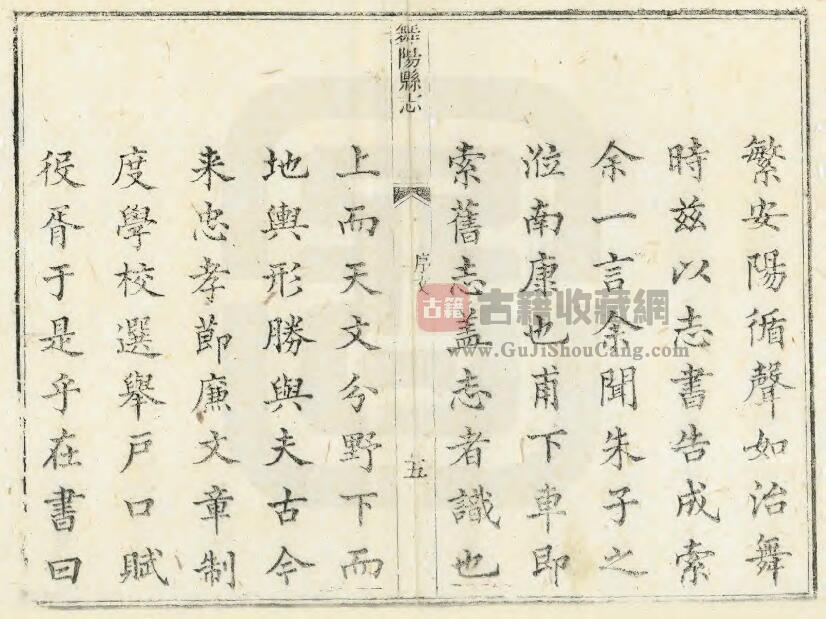 繁安陽循聲如治舞
時茲以志書告成索
余一言余聞朱子之
涖南康也甫下車即
索舊志蓋志者識也
舞陽縣志
序文
五
上而天文分野下而
地輿形勝與夫古今
来忠孝節廉文章制
度學校選舉戶口賦
役胥于是乎在書曰
古籍
古籍收藏網
www.GuJiShouCang.com